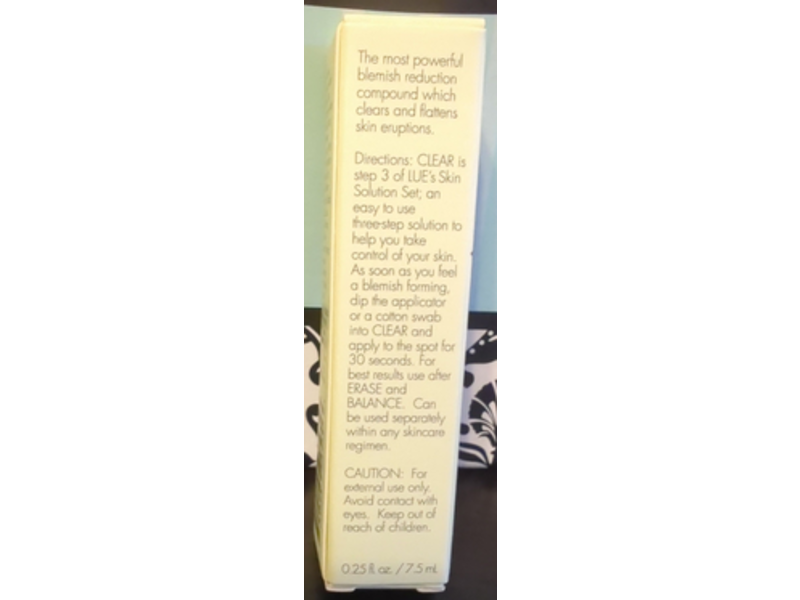 The most powerful
blemish reduction
compound which
clears and flattens
skin eruptions.
Directions: CLEAR is
step 3 of LUE's Skin
Solution Set; an
easy to use
three-step solution to
help you take
control of your skin.
As soon as you feel
a blemish forming,
dip the applicator
or a cotton swab
into CLEAR and
apply to the spot for
30 seconds. For
best results use after
ERASE and
BALANCE. Can
be used separately
within any skincare
regimen.
CAUTION: For
external use only.
Avoid contact with
eyes. Keep out of
reach of children.
0.25 fl. oz. / 7.5 mL